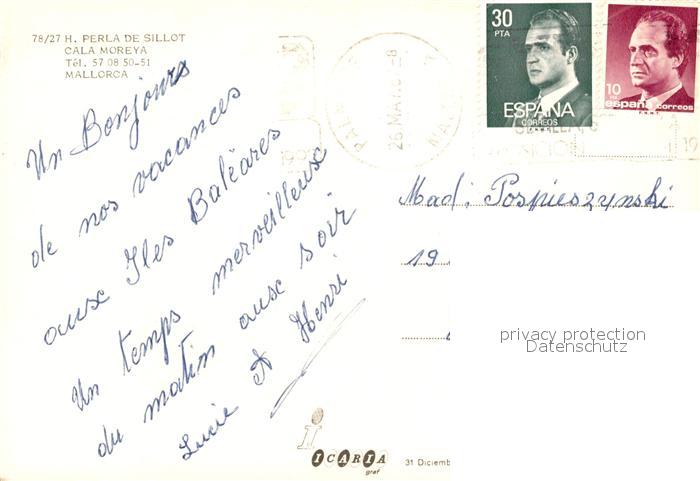 78/27 H. PERLA DE SILLOT
CALA MOREYA
Tél. 57 08 50-51
MALLORCA
Un Bonjours
de nos vacances
aux Iles Baléares
Un temps merveilleux
du matin aux soir
Lucie A Henri
ICARIA
graf
31 Diciemb
30
PTA
ESPAÑA
CORREOS
F.N.M.T.
10
PTA
españa correos
F.N.M.T.
26 MAR
Mad. Pospieszynski
19
privacy protection
Datenschutz